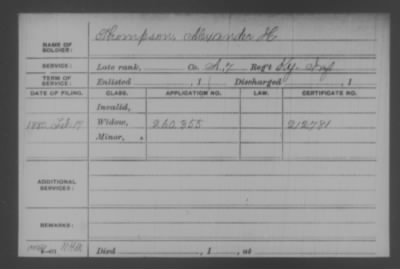 NAME OF SOLDIER: Thompson, Alexander H
SERVICE: Late rank, Co. A, 7 Reg't Ky. Inf
TERM OF SERVICE: Enlisted , 1 Discharged , 1
DATE OF FILING. CLASS. APPLICATION NO. LAW. CERTIFICATE NO.
Invalid,
1880, Feb. 17 Widow, 260.355 212781
Minor,
ADDITIONAL SERVICES:
REMARKS:
Died , 1 , at